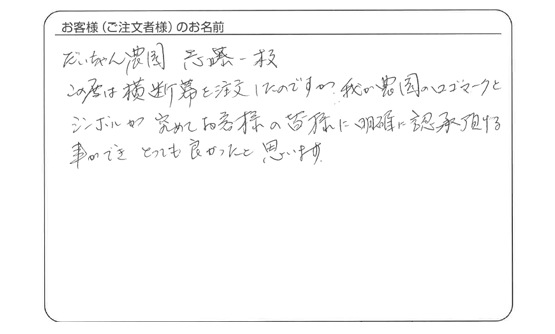 お客様（ご注文者様）のお名前
だいちゃん農園
この度は横断幕を注文したのですが、我が農園のロゴマークと
シンボルが 改めてお客様の皆様に明確に認承頂ける
事ができ とっても良かったと思います。